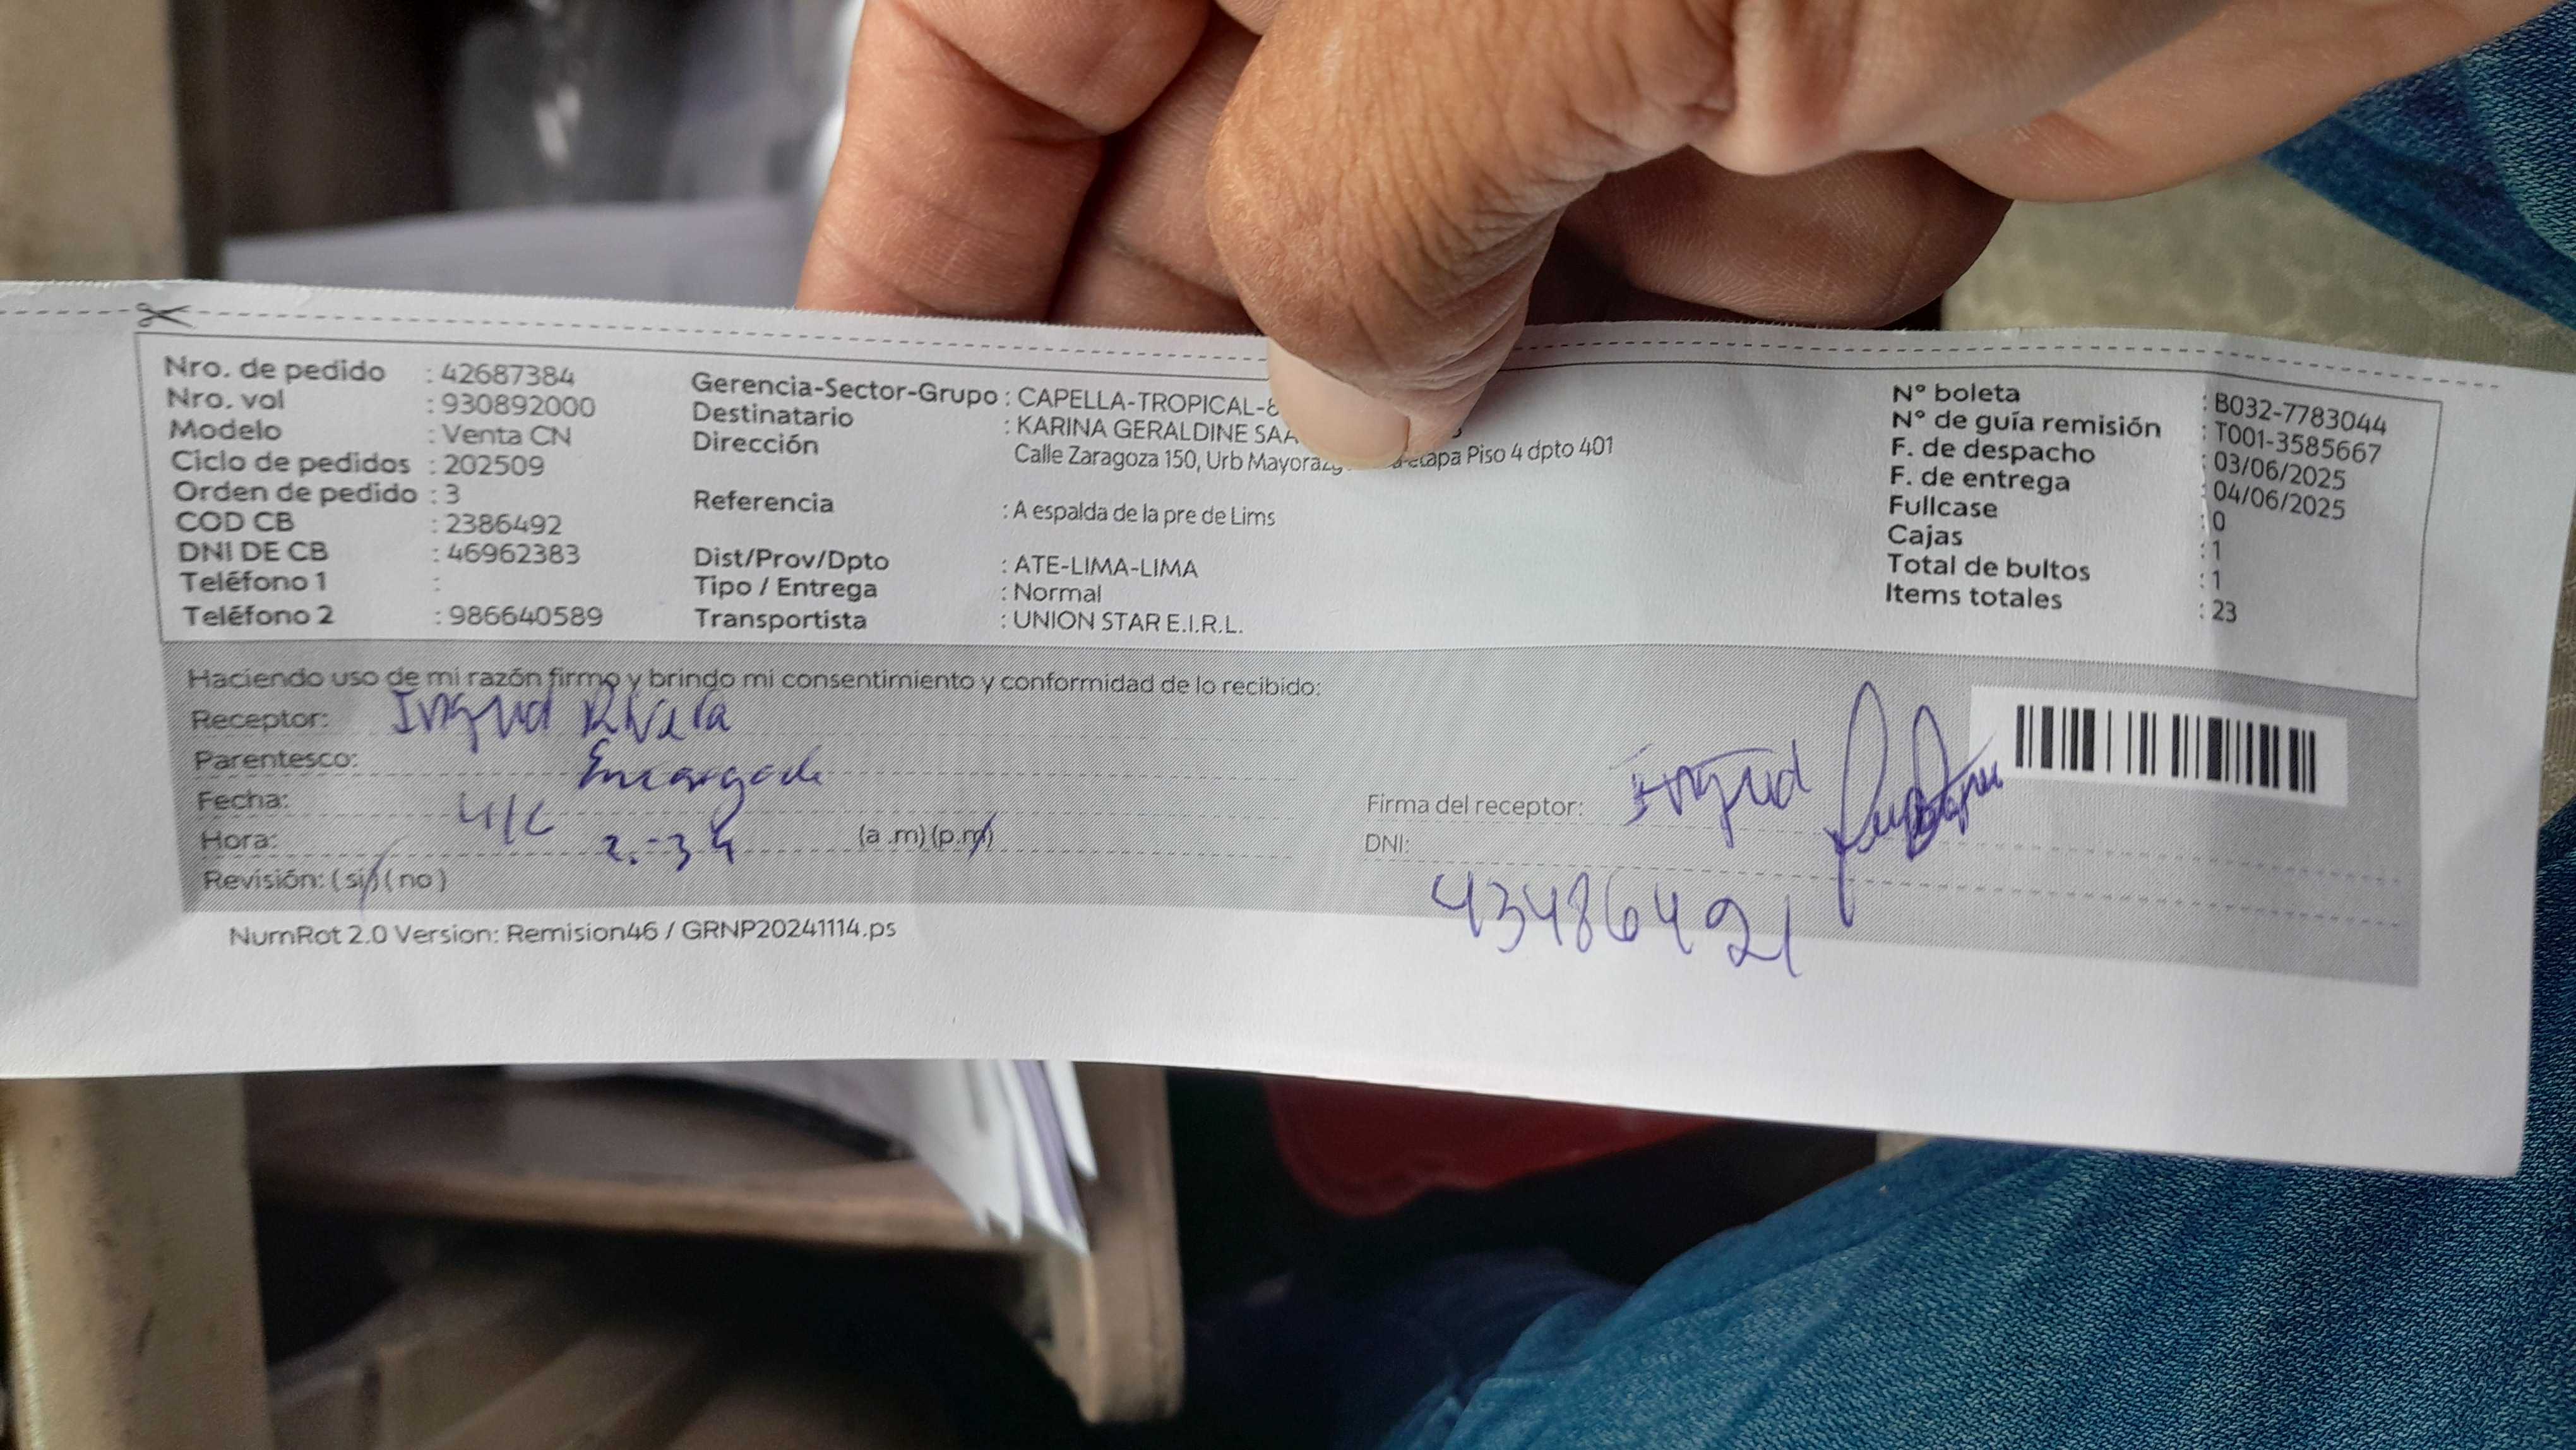 Nro. de pedido : 42687384
Nro. vol : 930892000
Modelo : Venta CN
Ciclo de pedidos : 202509
Orden de pedido : 3
COD CB : 2386492
DNI DE CB : 46962383
Teléfono 1 :
Teléfono 2 : 986640589
Gerencia-Sector-Grupo : CAPELLA-TROPICAL-
Destinatario : KARINA GERALDINE
Dirección
Calle Zaragoza 150, Urb etapa Piso 4 dpto 401
Referencia : A espalda de la pre de Lims
Dist/Prov/Dpto : ATE-LIMA-LIMA
Tipo / Entrega : Normal
Transportista : UNION STAR E.I.R.L.
N° boleta : B032-7783044
N° de guía remisión : T001-3585667
F. de despacho : 03/06/2025
F. de entrega : 04/06/2025
Fullcase : 0
Cajas : 1
Total de bultos : 1
Items totales : 23
Haciendo uso de mi razón firmo y brindo mi consentimiento y conformidad de lo recibido:
Receptor: Ingrid Rivera
Parentesco: Encargada
Fecha: 4/6
Hora: 2:34 (a .m) (p.m)
Revisión: (si) (no)
Firma del receptor: Ingrid
DNI: 43486421
NumRot 2.0 Version: Remision46 / GRNP20241114.ps